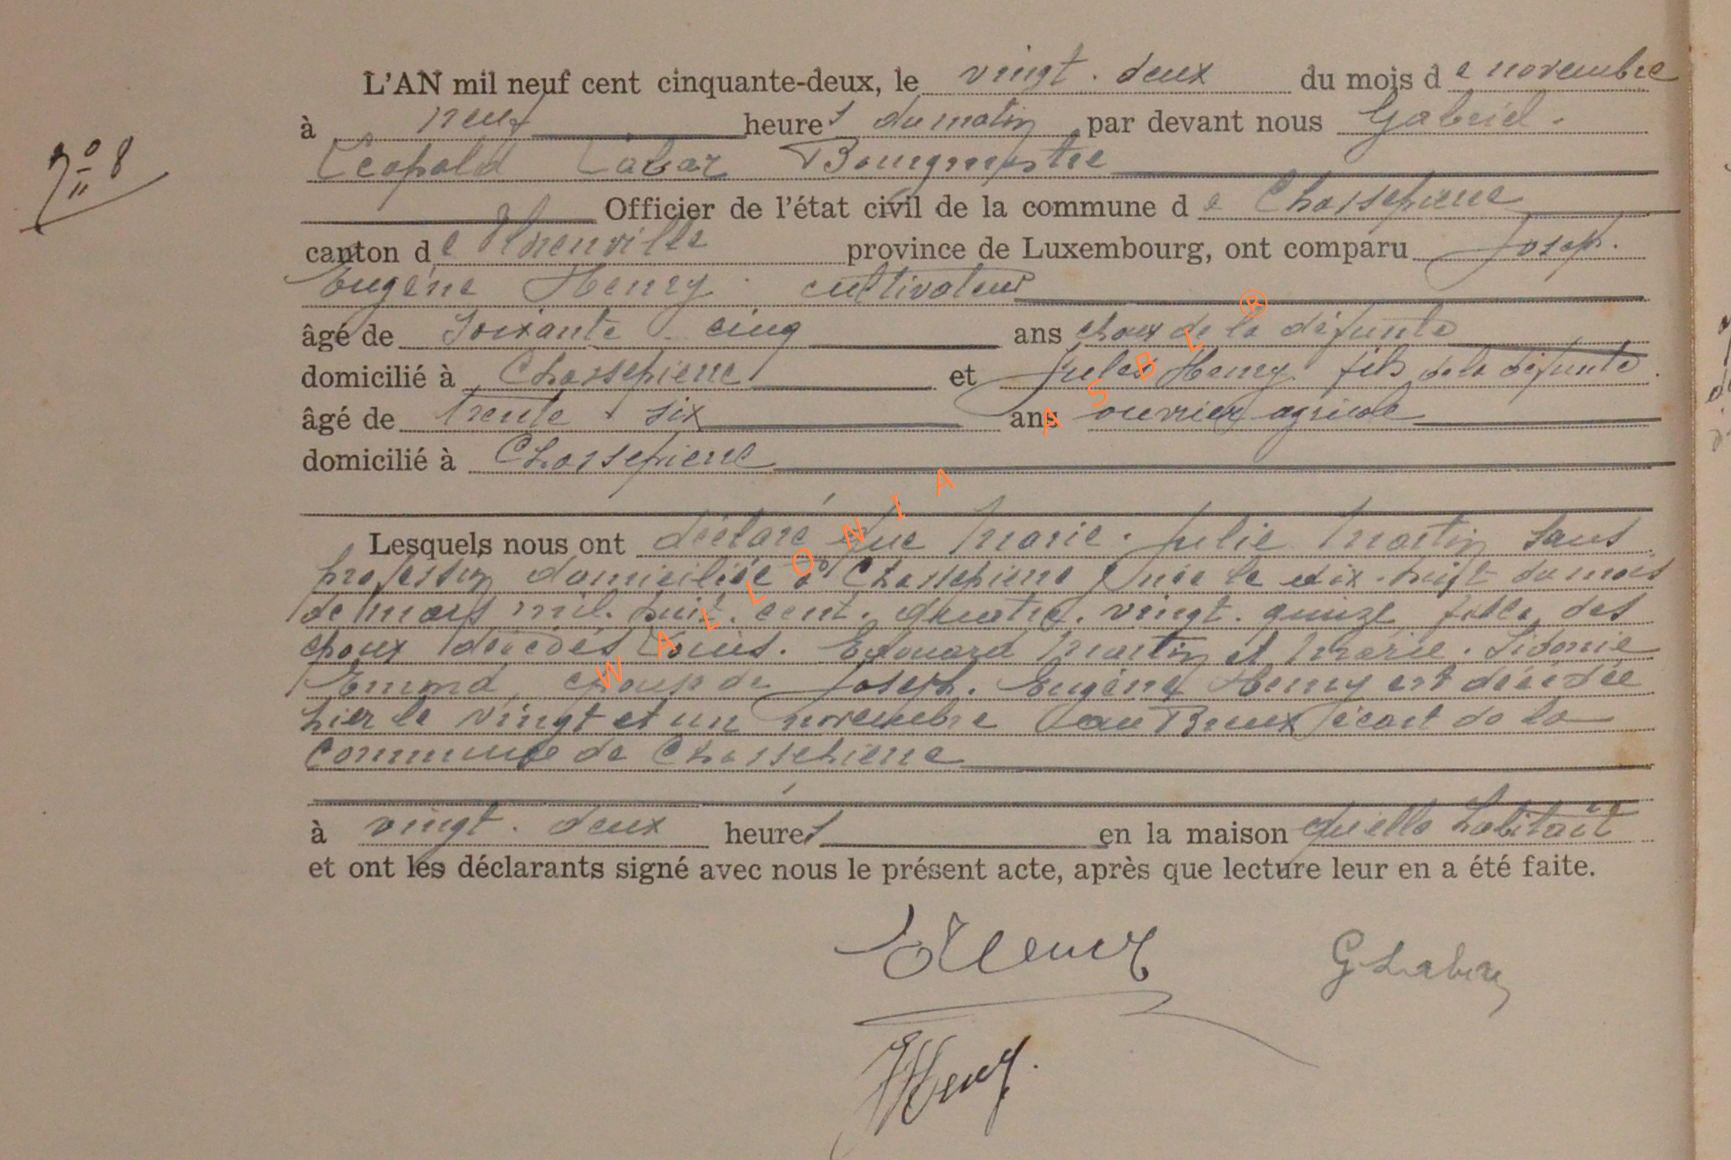 L'AN mil neuf cent cinquante-deux, le vingt-deux du mois de novembre
à neuf heures du matin par devant nous Gabriel-
Léopold Labar Bourgmestre
N° 8
Officier de l'état civil de la commune de Chassepierre
canton de Florenville province de Luxembourg, ont comparu Joseph-
Eugène Henry cultivateur
âgé de soixante cinq ans époux de la défunte
domicilié à Chassepierre et Jules Henry fils de la défunte
âgé de trente six ans ouvrier agricole
domicilié à Chassepierre
Lesquels nous ont déclaré que Marie-Julie Martin sans
profession domiciliée à Chassepierre née le dix-huit du mois
de mars mil-huit-cent-quatre-vingt-quinze fille des
époux décédés Louis-Edouard Martin et Marie-Sidonie
épouse de Joseph-Eugène Henry est décédée
hier le vingt et un novembre écart de la
commune de Chassepierre
à vingt-deux heures en la maison qu'elle habitait
et ont les déclarants signé avec nous le présent acte, après que lecture leur en a été faite.
EHenry G Labar
JHenry
WALLONIA ASBL ®